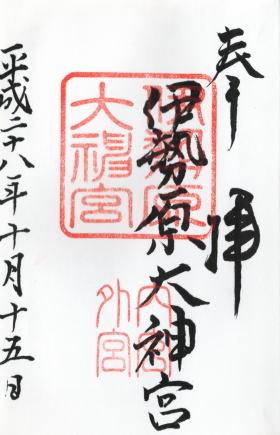 奉拝
伊勢原大神宮
伊勢原
大神宮
内宮
外宮
平成二十八年十月十五日